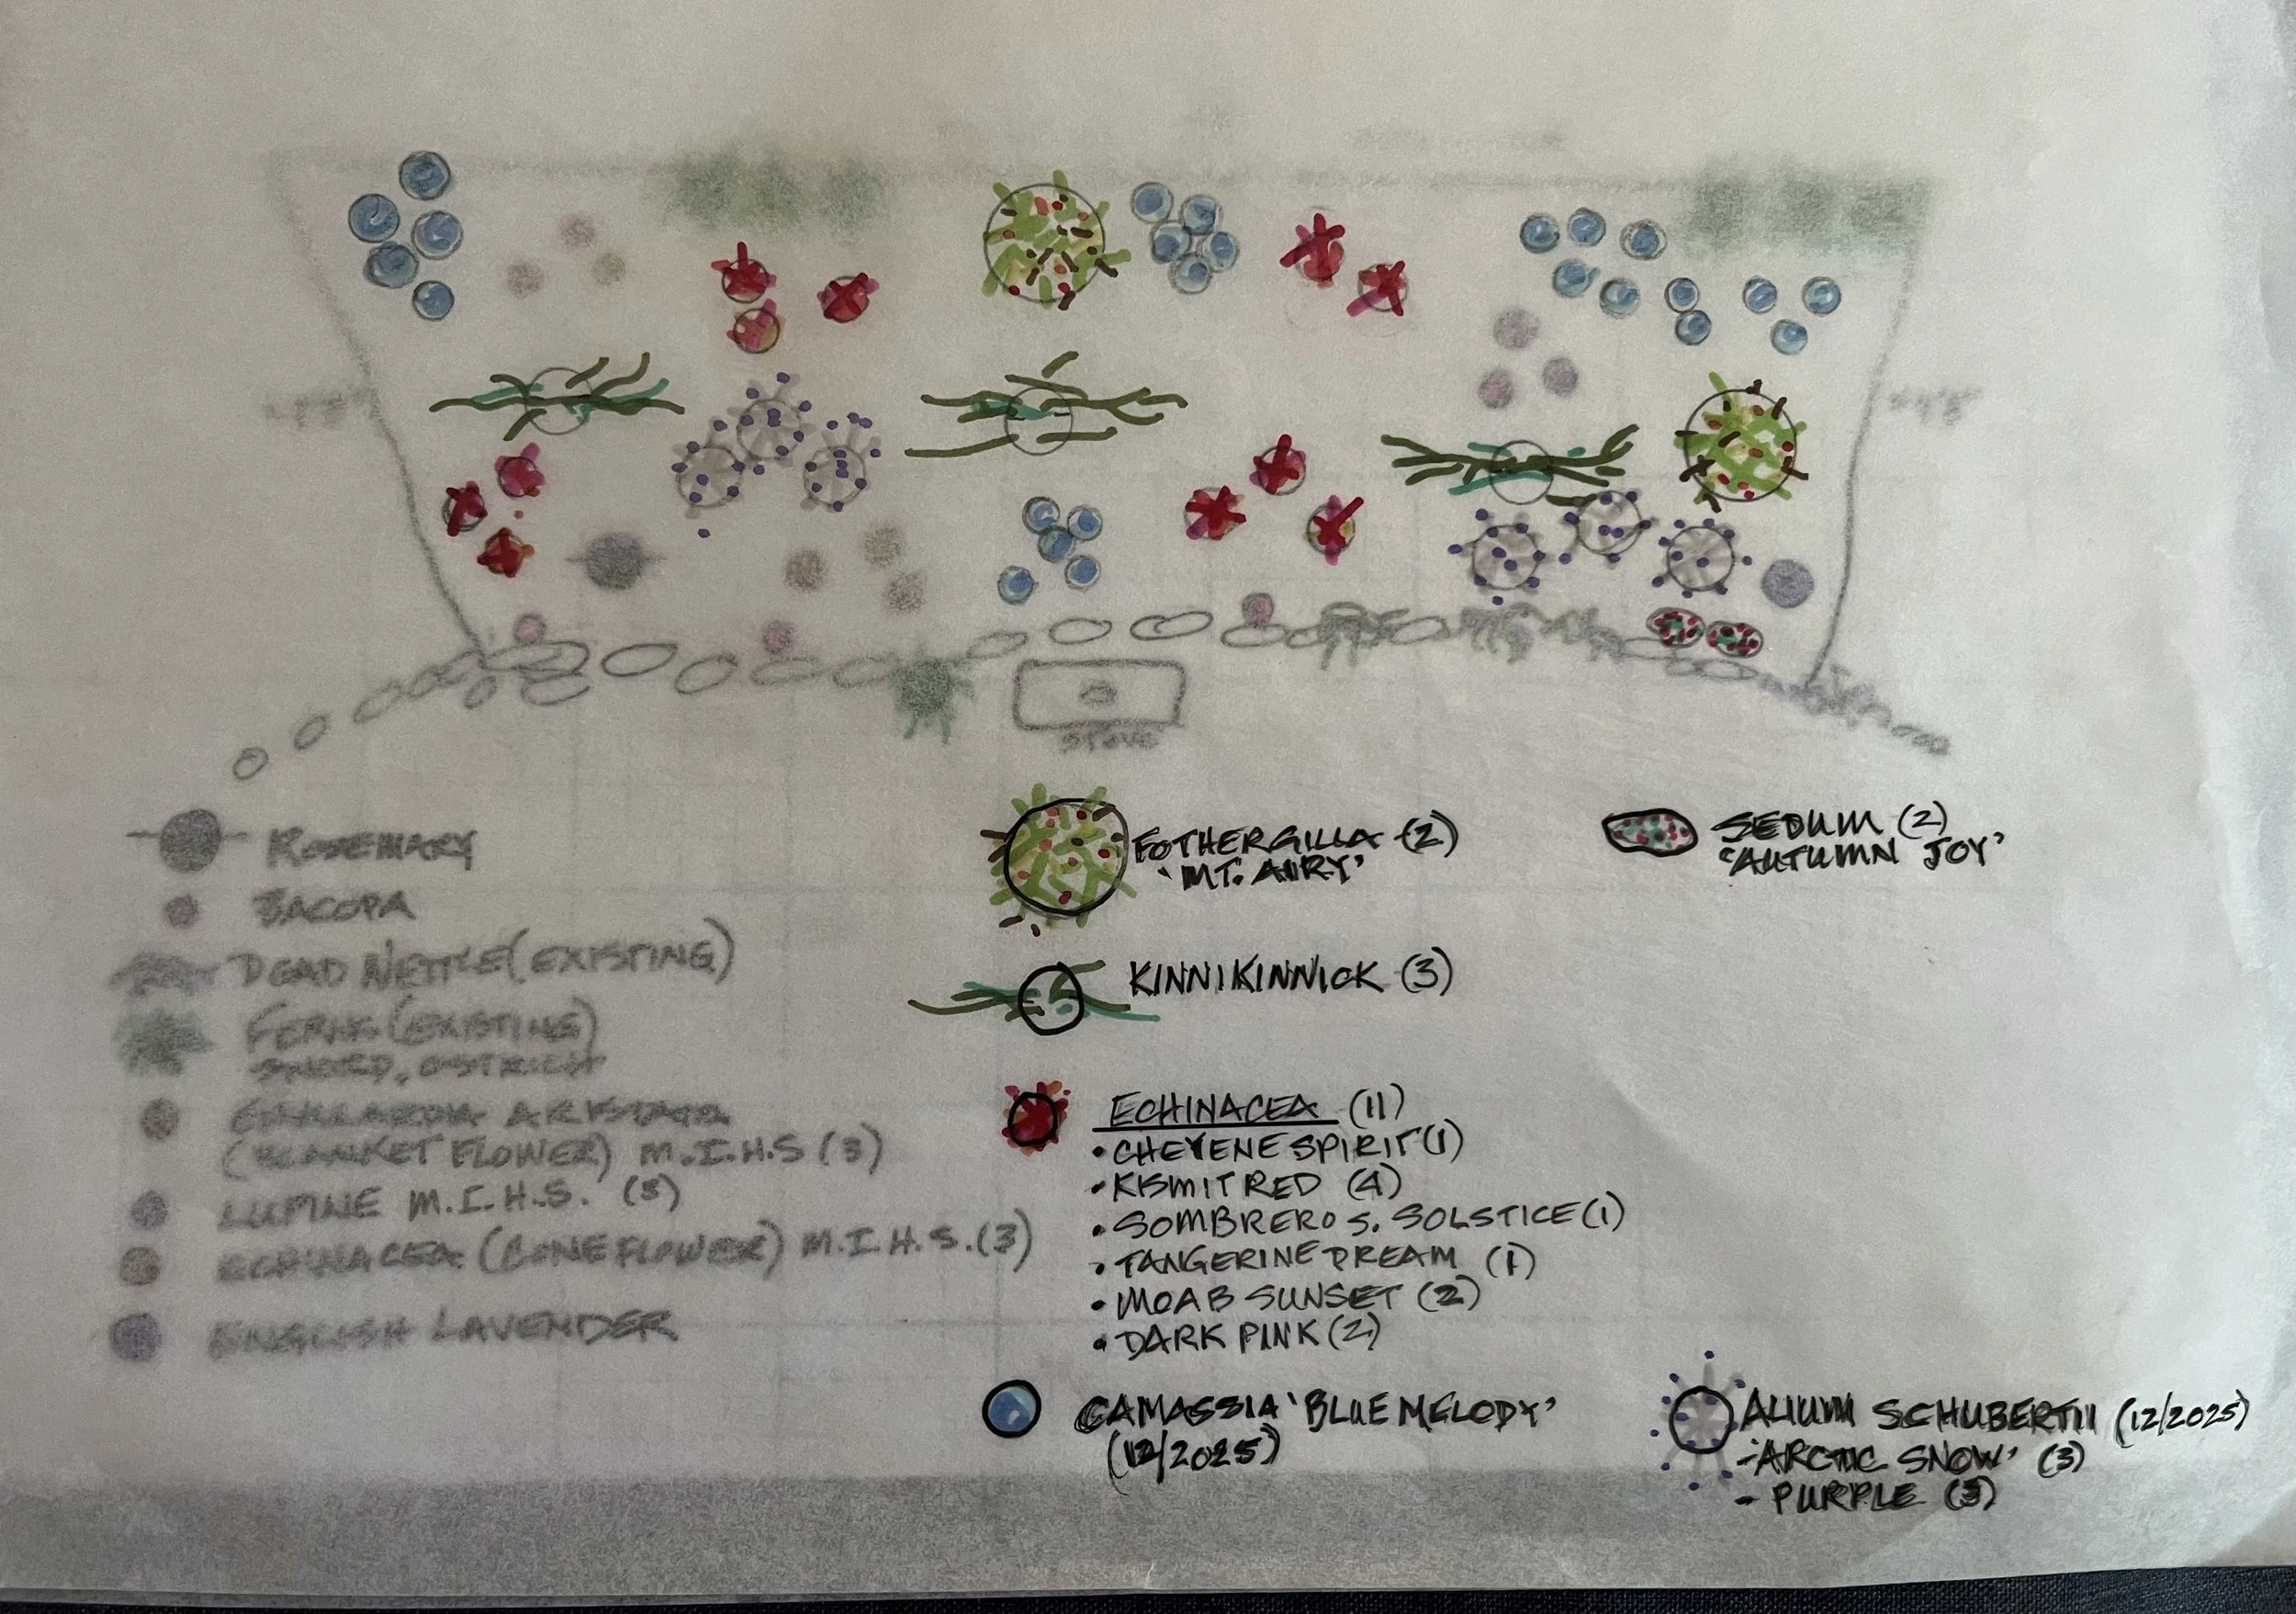 STOVE
ROSEMARY
BACOPA
DEAD NETTLE (EXISTING)
FERNS (EXISTING)
SWORD, OSTRICH
ARISTATA
(BLANKET FLOWER) M.I.H.S (3)
LUPINE M.I.H.S. (3)
ECHINACEA (CONEFLOWER) M.I.H.S. (3)
ENGLISH LAVENDER
FOTHERGILLA (2)
'MT. AIRY'
KINNIKINNICK (3)
ECHINACEA (11)
• CHEYENE SPIRIT (1)
• KISMIT RED (4)
• SOMBRERO S. SOLSTICE (1)
• TANGERINE DREAM (1)
• MOAB SUNSET (2)
• DARK PINK (2)
CAMASSIA 'BLUE MELODY'
(12/2025)
SEDUM (2)
'AUTUMN JOY'
ALIUM SCHUBERTII (12/2025)
- 'ARCTIC SNOW' (3)
- PURPLE (3)